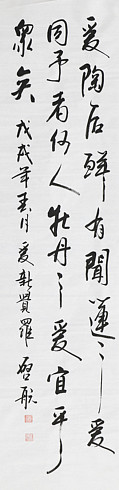 愛陶后鮮有聞蓮之愛
同予者何人牡丹之愛宜乎
眾矣 戊戌年春月 愛新覺羅 啓